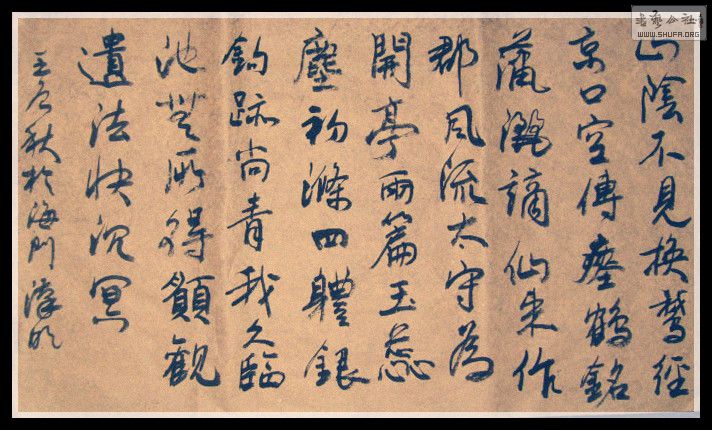 山陰不見換鵞經
京口空傳瘞鶴銘
蕭灑謫仙來作
郡風流太守為
開亭兩篇玉蕊
塵初滌四體銀
鈎跡尚青我久臨
池無所得願觀
遺法快沉冥
秋於海門
書藝公社
WWW.SHUFA.ORG